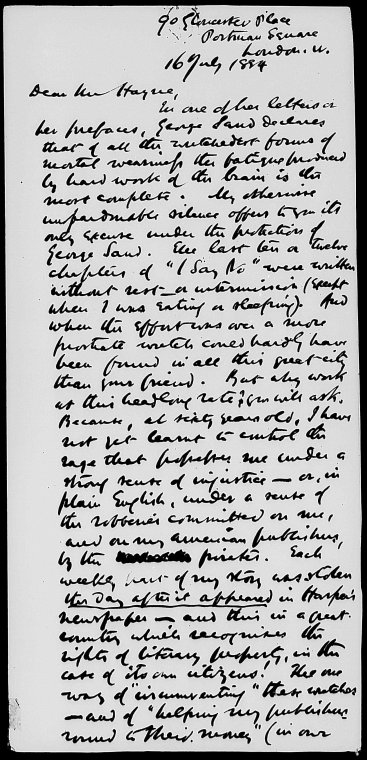 90 Gloucester Place
Portman Square
London. W.
16 July 1884
Dear Mr Hayne,
In one of her letters or
her prefaces, George Sand declares
that of all the wretchedest forms of
mortal weariness the fatigue produced
by hard work of the brain is the
most complete. My otherwise
unpardonable silence offers to you its
only excuse under the protection of
George Sand. The last ten or twelve
chapters of "I Say No" were written
without rest or intermission (except
when I was eating or sleeping). And
when the effort was over a more
prostrate wretch could hardly have
been found in all this great city
than your friend. But why work
at this headlong rate? you will ask.
Because, at sixty years old, I have
not yet learnt to control the
rage that possesses me under a
strong sense of injustice — or, in
plain English, under a sense of
the robberies committed on me,
and on my American publishers,
by the pirates. Each
weekly part of my story was stolen
the day after it appeared in Harper's
newspaper — and this in a great
country which recognises the
rights of literary property, in the
case of its own citizens! The one
way of "circumventing" these wretches
— and of "helping my publishers
round to their money" (in our